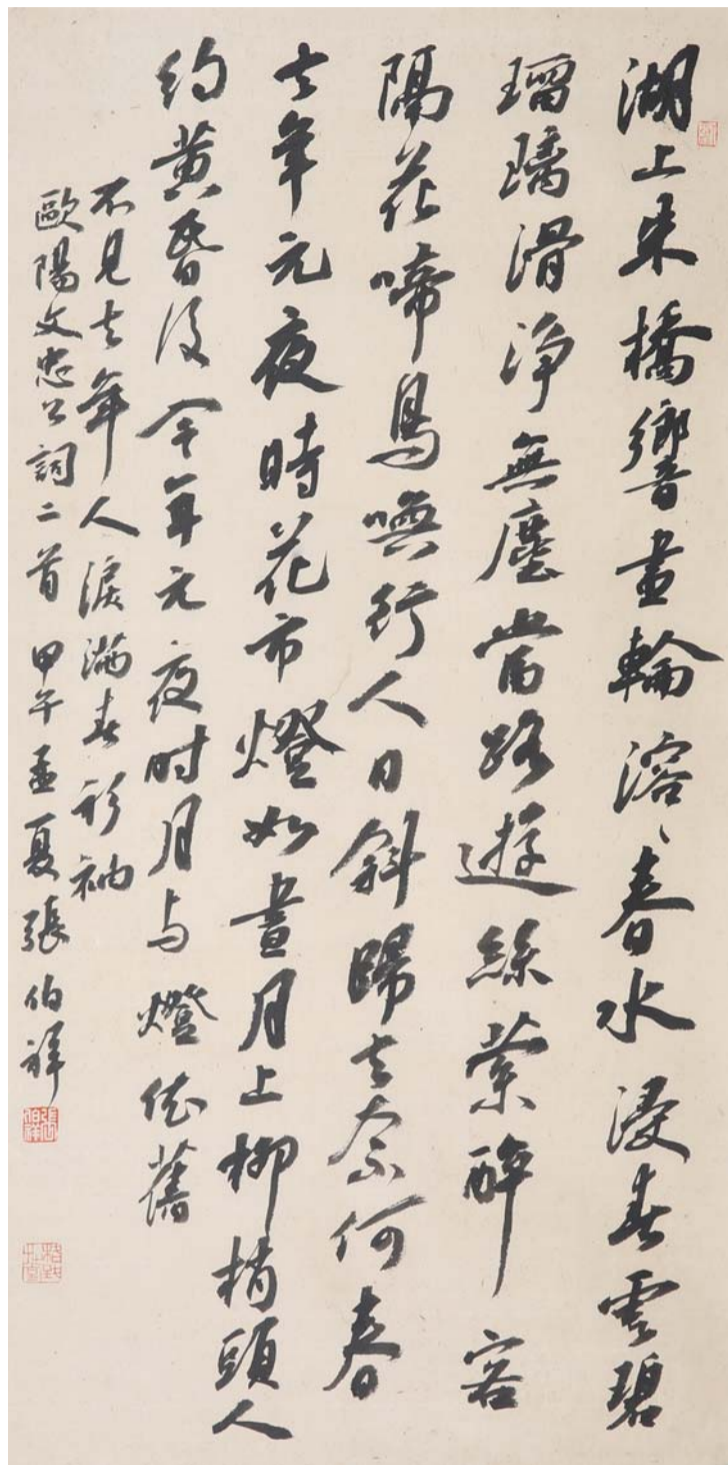 湖上朱橋響畫輪溶〻春水浸春雲碧
瑠璃滑净無塵當路遊絲縈醉客
隔花啼鳥喚行人日斜歸去奈何春
去年元夜時花市燈如晝月上柳梢頭人
約黄昏後今年元夜时月与燈依舊
不見去年人淚滿春衫袖
歐陽文忠公詞二首 甲午孟夏張伯祥